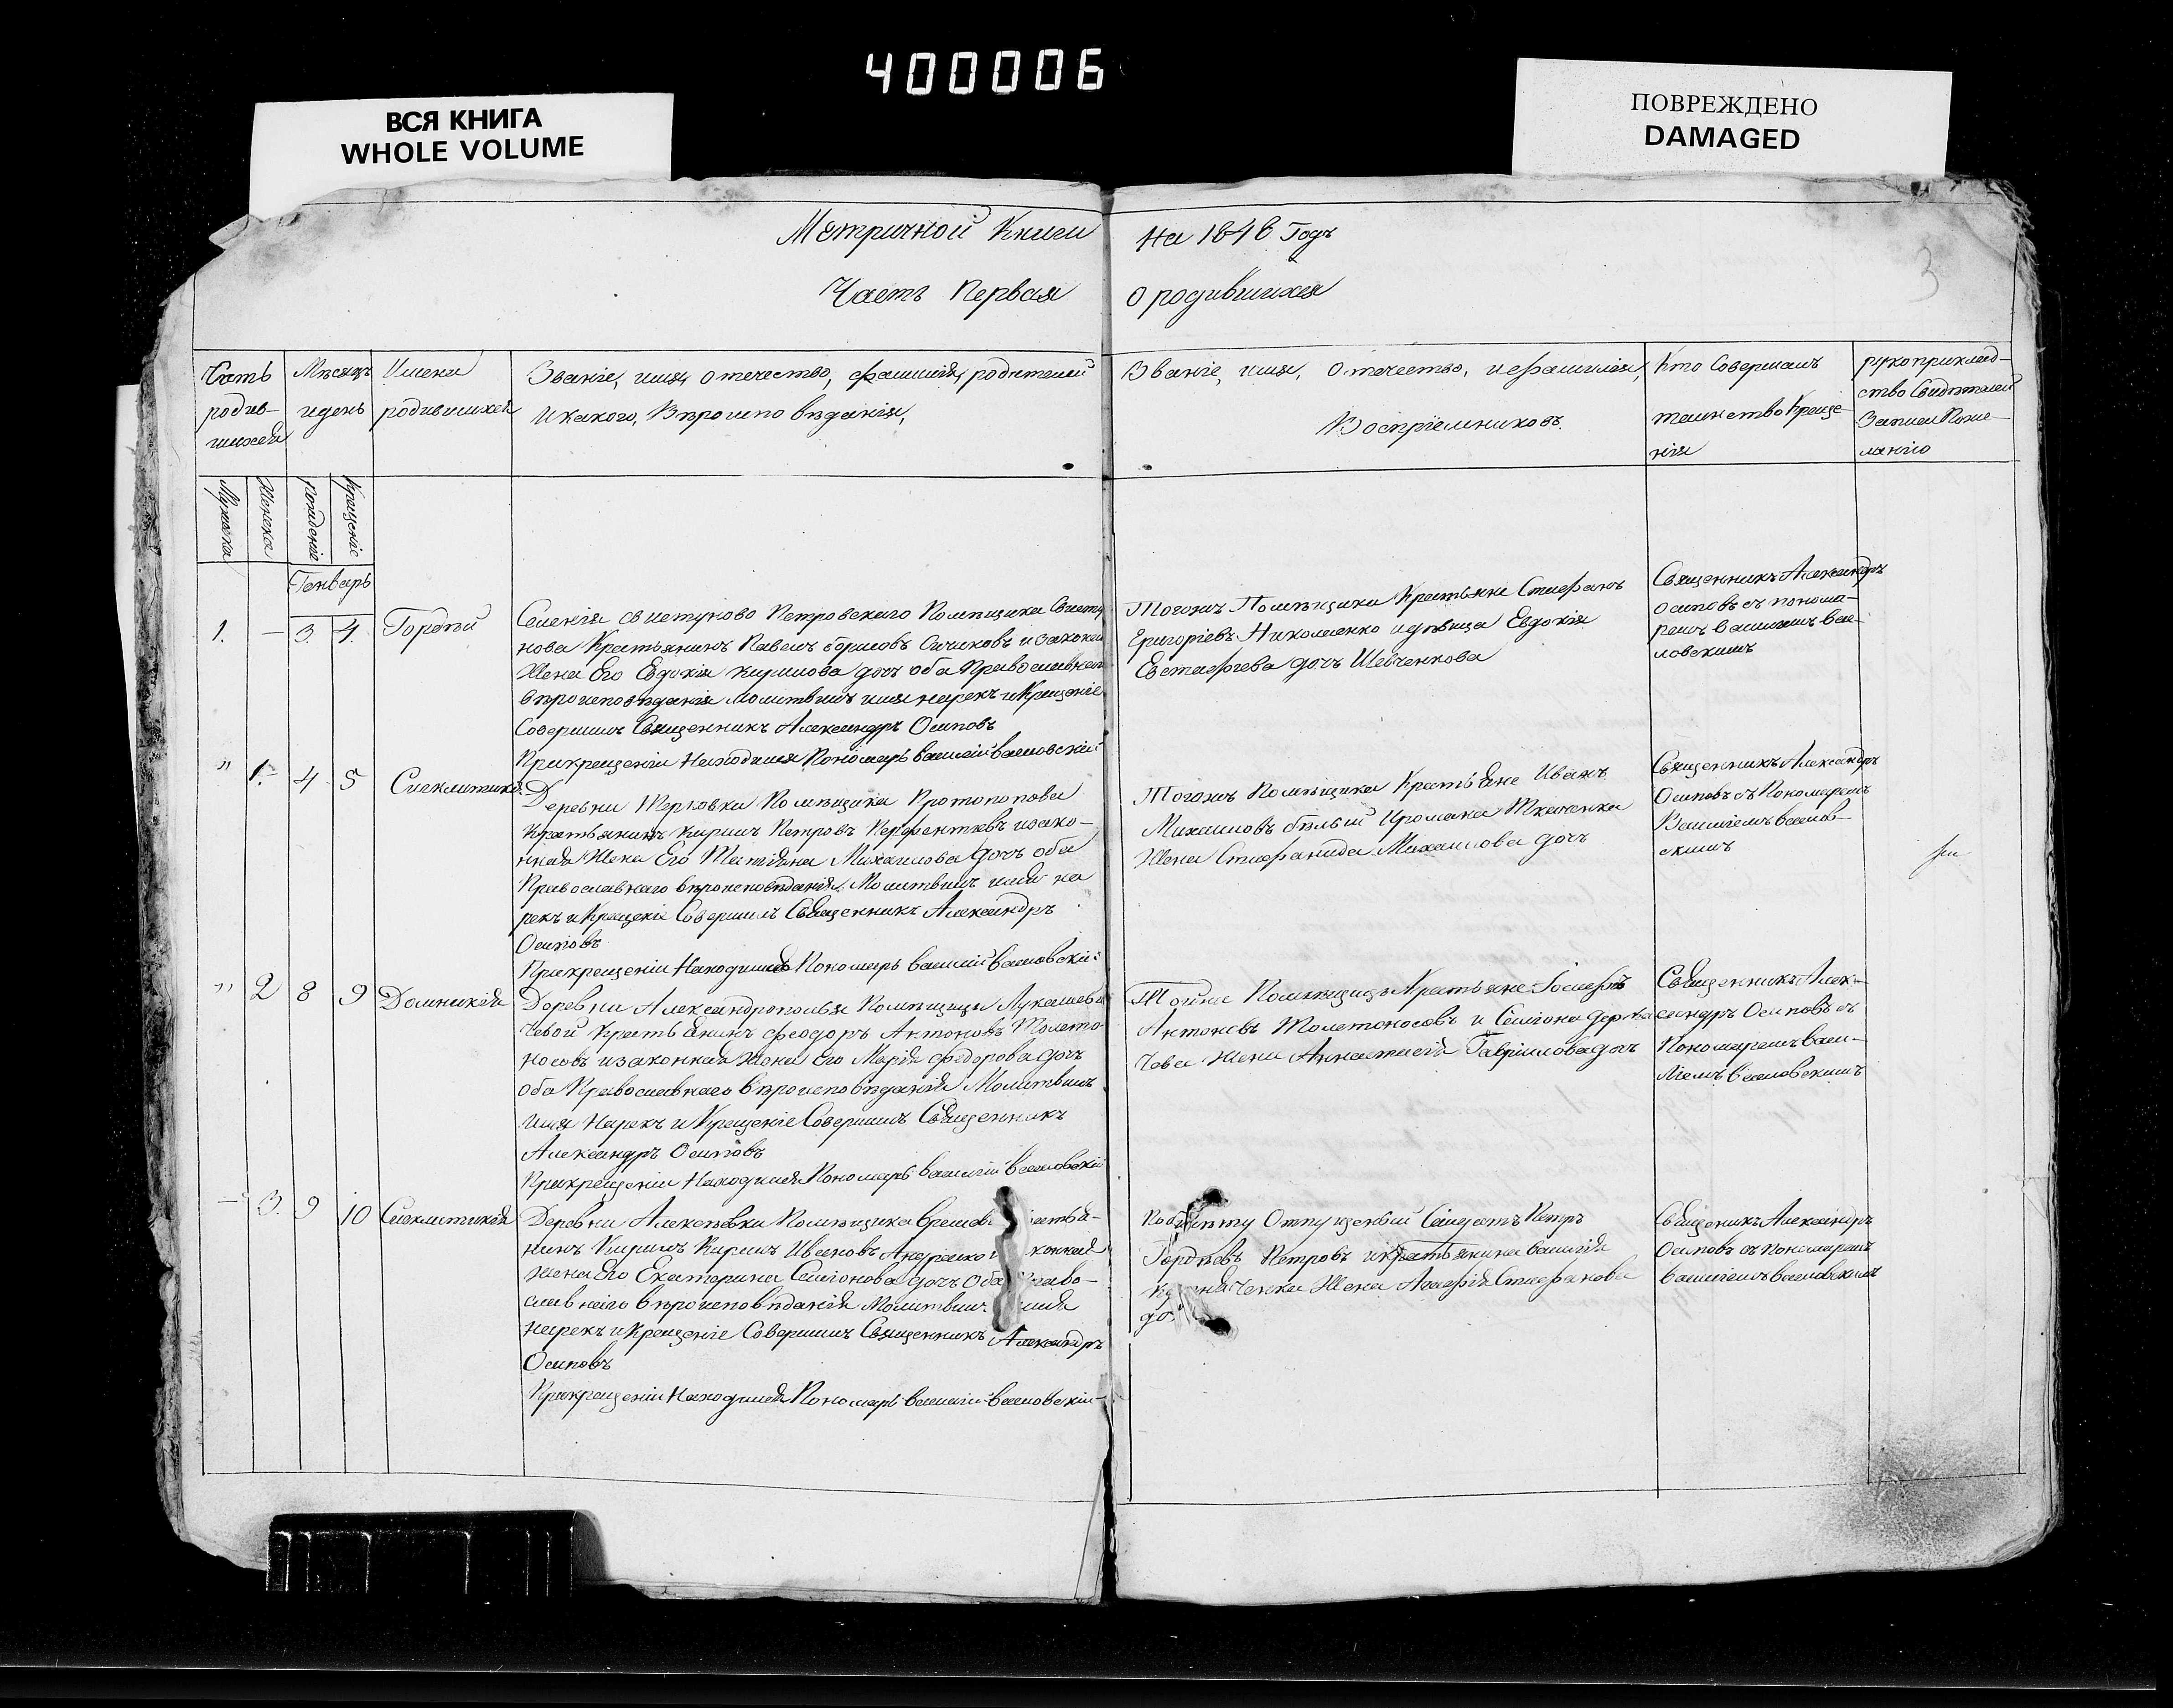 400006
ВСЯ КНИГА
WHOLE VOLUME
ПОВРЕЖДЕНО
DAMAGED
3
Метричной Книги На 1846 Годъ
Часть Первая О родившихся
Счетъ родив-шихся
Мѣсяцъ и день
Имена родившихся
Званіе, имя, отечество, фамилія, родителей
и какого, Вѣроисповѣданія,
Званіе, имя, отечество, и фамилія,
Воспріемниковъ.
Кто Совершалъ
таинство Креще-
нія
рукоприклад-
ство Свидѣтелей
Записи Поже-
ланію
Мужеска
Женска
рожденіе
Крещеніе
Генварь
1. — 3 4. Гордѣй
Селенія Свистуново Петровскаго Помѣщика Свисту-
нова Крестьянинъ Павелъ Борисовъ и законн
Жена Его Евдокія Кирилова дочь оба Православнаго
вѣроисповѣданія Молитвилъ имя нарекъ и Крещеніе
Совершилъ Священникъ Александръ Осиповъ
При крещеніи Находился Пономарь Василій
Тогожъ Помѣщика Крестьяне Стефанъ
Григоріевъ Николаенко и дѣвица Евдокія
Евстафіева дочь Шевченкова
Священникъ Александръ
Осиповъ съ понома-
ремъ Василіемъ
" 1. 4 5
Деревни Терновки Помѣщика Протопопова
Крестьянинъ Кирилъ Петровъ и зако-
нная Жена Его Татіяна Михайлова дочь оба
Православнаго вѣроисповѣданія Молитвилъ имя на
рекъ и Крещеніе Совершилъ Священникъ Александръ
Осиповъ
При крещеніи Находился Пономарь Василій
Тогожъ Помѣщика Крестьяне Иванъ
Михаиловъ Бѣлый и Романа Ткаченка
Жена Стефанида Михаилова дочь
Священникъ Александръ
Осиповъ съ Пономаремъ
Василіемъ
" 2 8 9 Домникія
Деревни Александрополья Помѣщицы Лукашеви
чевой Крестьянинъ Феодоръ Антоновъ Толсто-
носовъ и законная Жена Его Марія Федорова дочь
оба Православнаго вѣроисповѣданія Молитвилъ
имя Нарекъ и Крещеніе Совершилъ Священникъ
Александръ Осиповъ
При крещеніи Находился Пономарь Василій
Тойже Помѣщицы Крестьяне Іосифъ
Антоновъ Толстоносовъ и Семіона
Жена Анастасія Гавріилова дочь
Священникъ Алек-
сандръ Осиповъ съ
Пономаремъ Васи-
ліемъ
— 3. 9 10 Синклитикія
Деревни Алексѣевки Помѣщика
нинъ Кирилъ Кирилъ Ивановъ
Жена Его Екатерина Семіонова дочь Оба
славнаго вѣроисповѣданія Молитвилъ
нарекъ и Крещеніе Совершилъ Священникъ Александръ
Осиповъ
При крещеніи Находился Пономарь Василій
Отпущеный Солдатъ Петръ
Гордѣевъ Петровъ и крестьянина Василія
Жена Агафія Стефанова
Священикъ Александръ
Осиповъ съ Пономаремъ
Василіемъ